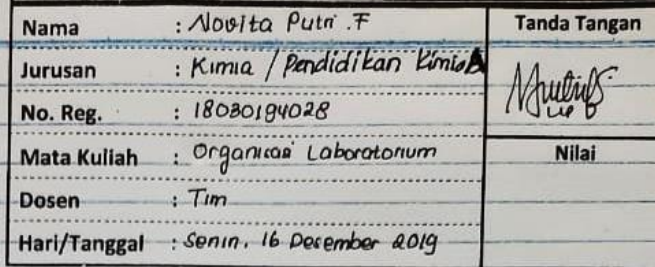 Nama : Novita Putri .F
Tanda Tangan
Jurusan : Kimia / Pendidikan Kimia
No. Reg. : 18030194028
Mata Kuliah : Organisasi Laboratorium
Nilai
Dosen : Tim
Hari/Tanggal : Senin, 16 Desember 2019